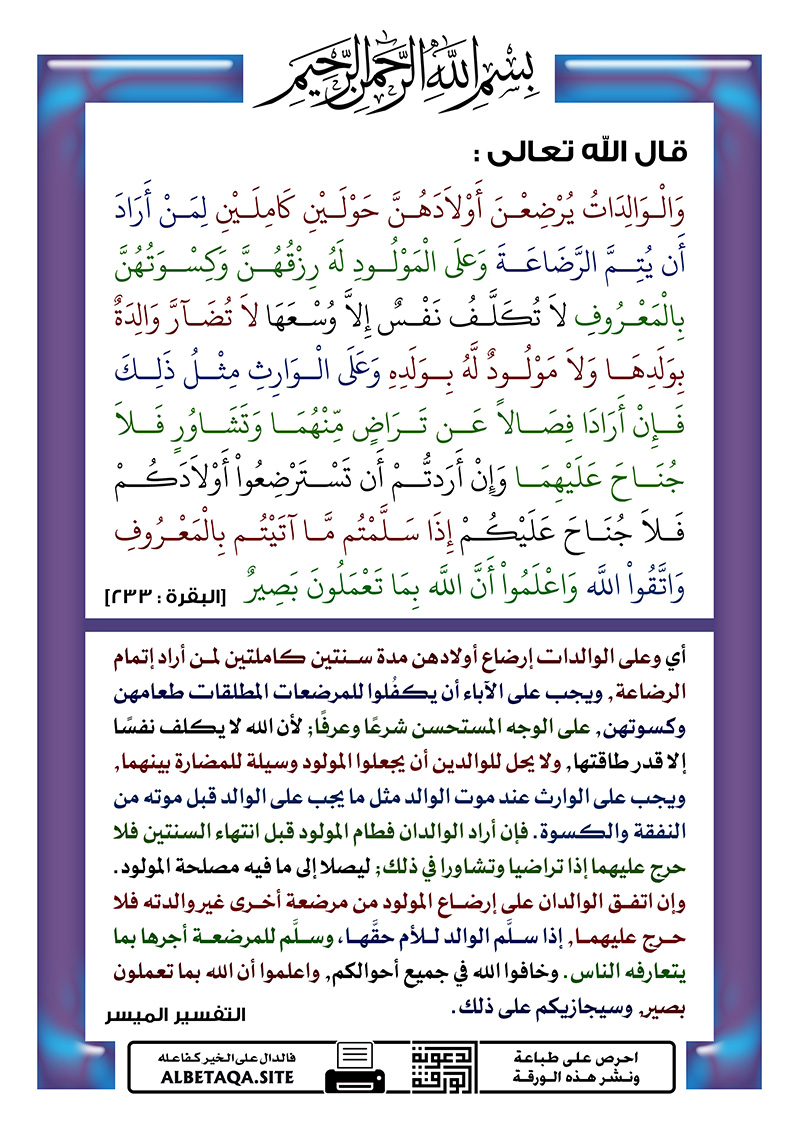 بِسْمِ اللَّهِ الرَّحْمَنِ الرَّحِيمِ
قال الله تعالى :
وَالْوَالِدَاتُ يُرْضِعْنَ أَوْلاَدَهُنَّ حَوْلَيْنِ كَامِلَيْنِ لِمَنْ أَرَادَ
أَن يُتِمَّ الرَّضَاعَةَ وَعلَى الْمَوْلُودِ لَهُ رِزْقُهُنَّ وَكِسْوَتُهُنَّ
بِالْمَعْرُوفِ لاَ تُكَلَّفُ نَفْسٌ إِلاَّ وُسْعَهَا لاَ تُضَآرَّ وَالِدَةٌ
بِوَلَدِهَا وَلاَ مَوْلُودٌ لَّهُ بِوَلَدِهِ وَعَلَى الْوَارِثِ مِثْلُ ذَلِكَ
فَإِنْ أَرَادَا فِصَالاً عَن تَرَاضٍ مِّنْهُمَا وَتَشَاوُرٍ فَلاَ
جُنَاحَ عَلَيْهِمَا وَإِنْ أَرَدتُّمْ أَن تَسْتَرْضِعُواْ أَوْلاَدَكُمْ
فَلاَ جُنَاحَ عَلَيْكُمْ إِذَا سَلَّمْتُم مَّا آتَيْتُم بِالْمَعْرُوفِ
وَاتَّقُواْ اللَّه وَاعْلَمُواْ أَنَّ اللَّه بِمَا تَعْمَلُونَ بَصِيرٌ [البقرة : ٢٣٣]
أي وعلى الوالدات إرضاع أولادهن مدة سنتين كاملتين لمن أراد إتمام
الرضاعة, ويجب على الآباء أن يكفُلوا للمرضعات المطلقات طعامهن
وكسوتهن, على الوجه المستحسن شرعًا وعرفًا; لأن الله لا يكلف نفسًا
إلا قدر طاقتها, ولا يحل للوالدين أن يجعلوا المولود وسيلة للمضارة بينهما,
ويجب على الوارث عند موت الوالد مثل ما يجب على الوالد قبل موته من
النفقة والكسوة. فإن أراد الوالدان فطام المولود قبل انتهاء السنتين فلا
حرج عليهما إذا تراضيا وتشاورا في ذلك; ليصلا إلى ما فيه مصلحة المولود.
وإن اتفق الوالدان على إرضاع المولود من مرضعة أخرى غير والدته فلا
حرج عليهما, إذا سلَّم الوالد للأم حقَّها، وسلَّم للمرضعة أجرها بما
يتعارفه الناس. وخافوا الله في جميع أحوالكم, واعلموا أن الله بما تعملون
بصير, وسيجازيكم على ذلك.
التفسير الميسر
احرص على طباعة
ونشر هذه الورقة
الورقة
الدعوية
فالدال على الخير كفاعله
ALBETAQA.SITE